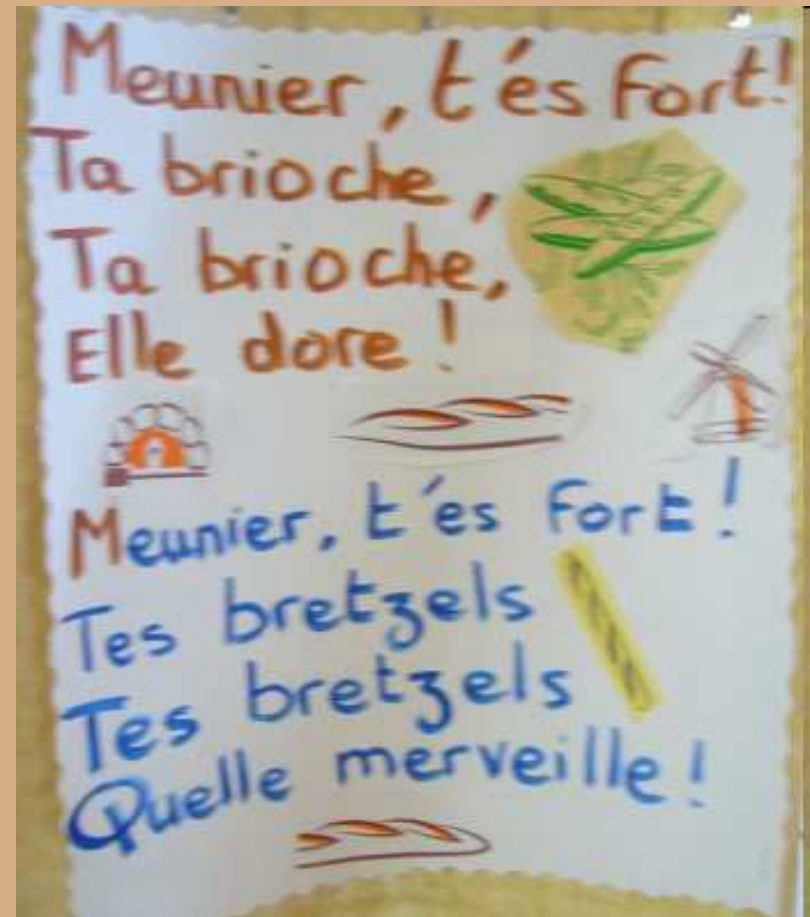 Meunier, t'és fort!
Ta brioche,
Ta brioche,
Elle dore !
Meunier, t'es fort !
Tes bretzels
Tes bretzels
Quelle merveille !